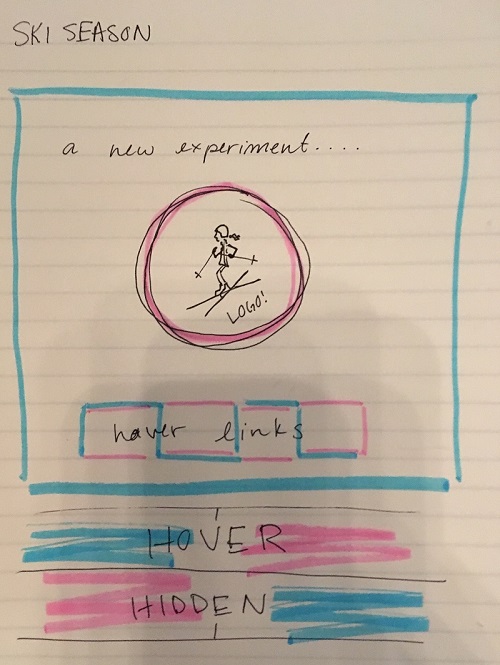 SKI SEASON
a new experiment....
LOGO!
hover links
HOVER
HIDDEN